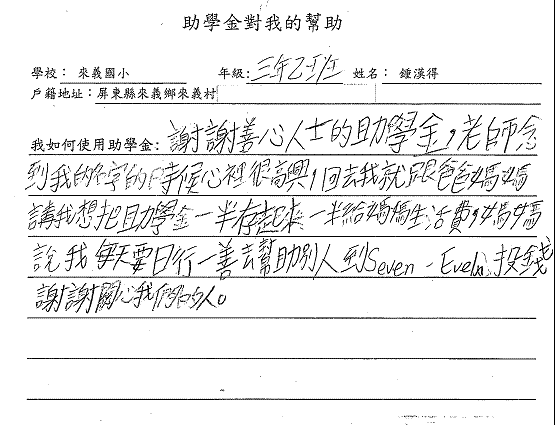 助學金對我的幫助
學校: 來義國小 年級: 三年乙班 姓名: 鍾漢得
戶籍地址: 屏東縣來義鄉來義村
我如何使用助學金: 謝謝善心人士的助學金,老師念
到我的名字的時候心裡很高興,回去我就跟爸爸媽媽
講我想把助學金一半存起來一半給媽媽生活費,媽媽
說我每天要日行一善去幫助別人到Seven-Evelu投錢
謝謝關心我們的人。